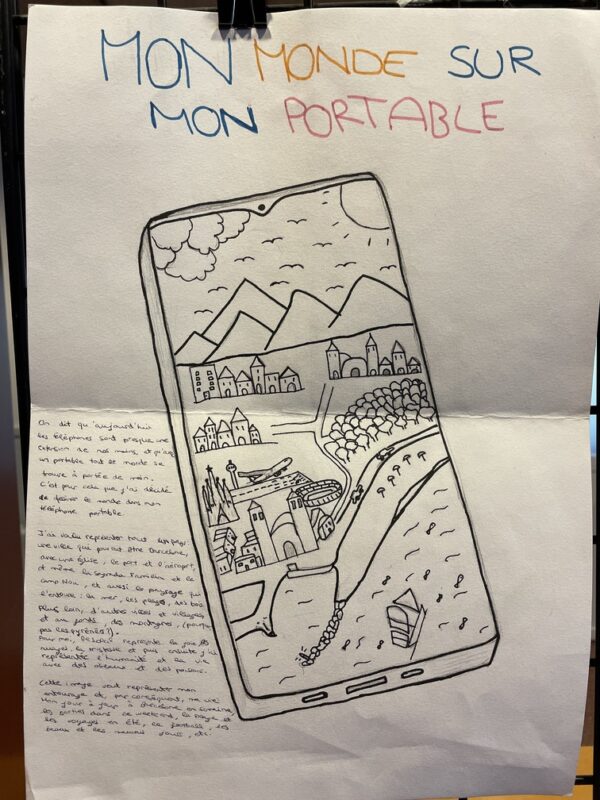 MON MONDE SUR
MON PORTABLE
On dit qu'aujourd'hui
les téléphones sont presque une
extension de nos mains, et qu'avec
un portable tout le monde se
trouve à portée de main.
C'est pour cela que j'ai décidé
de dessiner le monde dans mon
téléphone portable.
J'ai voulu représenter tout
une ville qui pourrait être Barcelone,
avec une église, le port et l'aéroport,
et même la Sagrada Familia et le
Camp Nou, et aussi le paysage qui
l'entoure: la mer, les plages, les bois.
Plus loin, d'autres villes et villages,
et au fond, des montagnes, (pourquoi
pas les pyrénées?).
Pour moi, le soleil représente la joie, les
nuages, la tristesse et puis ensuite j'ai
représenté l'humanité et la vie
avec des oiseaux et des poissons.
Cette image veut représenter mon
entourage et, par conséquent, ma vie:
Mon jour à jour à Barcelone en semaine,
les sorties dans ce weekend, la plage et
les voyages en été, le football, les
bons et les mauvais jours, etc.